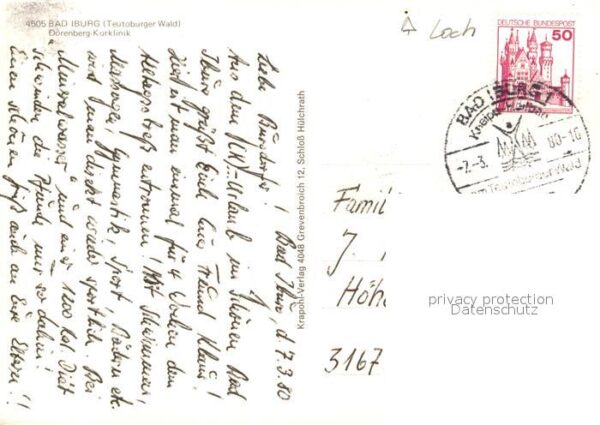 4505 BAD IBURG (Teutoburger Wald)
Dörenberg-Kurklinik
Bad Iburg, d. 7.3.80
Liebe Bursdorfs!
Aus dem (Kur)-Urlaub im schönen Bad
Iburg grüßt Euch Euer Freund Klaus!
Hier ist man einmal für 4 Wochen dem
Alltagsstreß entronnen! Mit Schwimmen,
Massagen, Gymnastik, Sport, Bädern etc.
wird man direkt wieder sportlich. Bei
"Mineralwasser" und einer 1200 kal. Diät
schwinden die Pfunde nur so dahin!
Einen schönen Gruß auch an Eure Eltern!!
Krapohl-Verlag 4048 Grevenbroich 12, Schloß Hülchrath
Loch
DEUTSCHE BUNDESPOST
50
BAD IBURG 1
Kneipp-Heilbad
-7.-3. 80-16
am Teutoburger Wald
Famil
J.
Höh
3167
privacy protection
Datenschutz